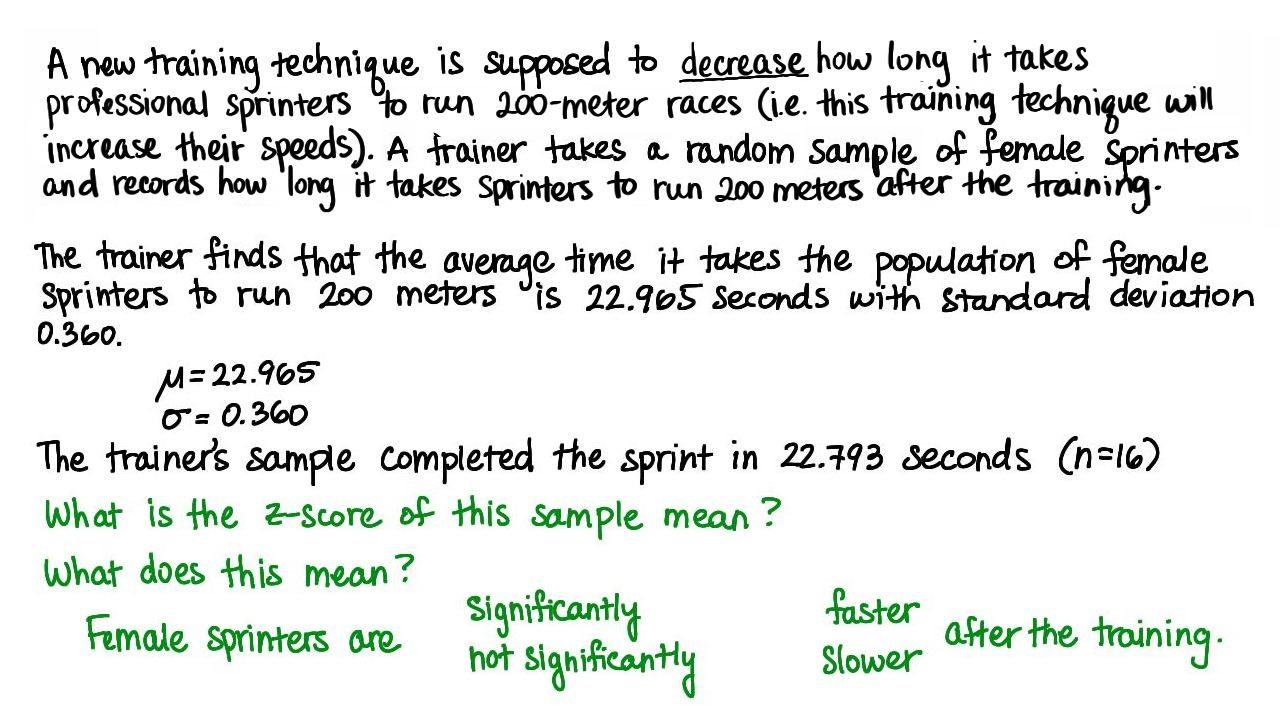 A new training technique is supposed to decrease how long it takes
professional sprinters to run 200-meter races (i.e. this training technique will
increase their speeds). A trainer takes a random sample of female sprinters
and records how long it takes sprinters to run 200 meters after the training.
The trainer finds that the average time it takes the population of female
sprinters to run 200 meters is 22.965 seconds with standard deviation
0.360.
μ = 22.965
σ = 0.360
The trainer's sample completed the sprint in 22.793 seconds (n=16)
What is the z-score of this sample mean?
What does this mean?
significantly faster
Female sprinters are after the training.
not significantly slower